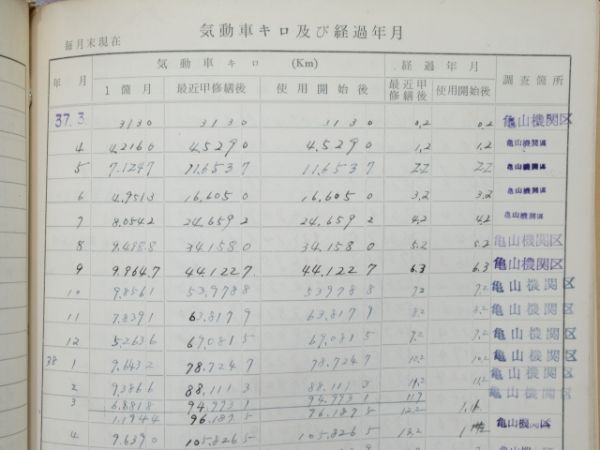 毎月末現在
気動車キロ及び経過年月
年 月 気動車キロ (Km) 経過年月 調査箇所
1箇月 最近甲修繕後 使用開始後 最近甲修繕後 使用開始後
37.3 3130 3130 3130 0.2 0.2 亀山機関区
4 4.2160 4.5290 4.5290 1.2 1.2 亀山機関区
5 7.1247 11.6537 11.6537 2.2 2.2 亀山機関区
6 4.9513 16.6050 16.6050 3.2 3.2 亀山機関区
7 8.0542 24.6592 24.6592 4.2 4.2 亀山機関区
8 9.4988 34.1580 34.1580 5.2 5.2 亀山機関区
9 9.9647 44.1227 44.1227 6.3 6.3 亀山機関区
10 9.8561 53.9788 53.9788 7.2 7.2 亀山機関区
11 9.8391 63.8179 63.8179 8.2 8.2 亀山機関区
12 5.2636 69.0815 69.0815 9.2 9.2 亀山機関区
38 1 9.6432 78.7247 78.7247 10.2 10.2 亀山機関区
2 9.3866 88.1113 88.1113 11.2 11.2 亀山機関区
3 6.8818 94.9931 94.9931 11.9
1.1944 96.1875 96.1875 12.2 亀山機関区
4 9.6390 105.8265 105.8265 13.2 亀山機関区